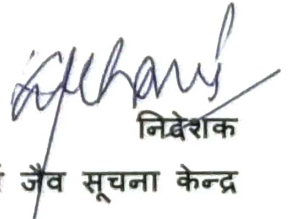 निदेशक
जैव सूचना केन्द्र